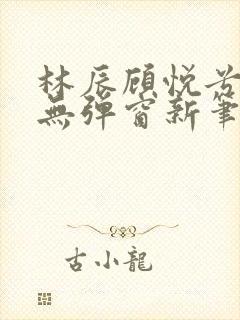 林辰顾悦兮
無彈窗新筆
古小龍